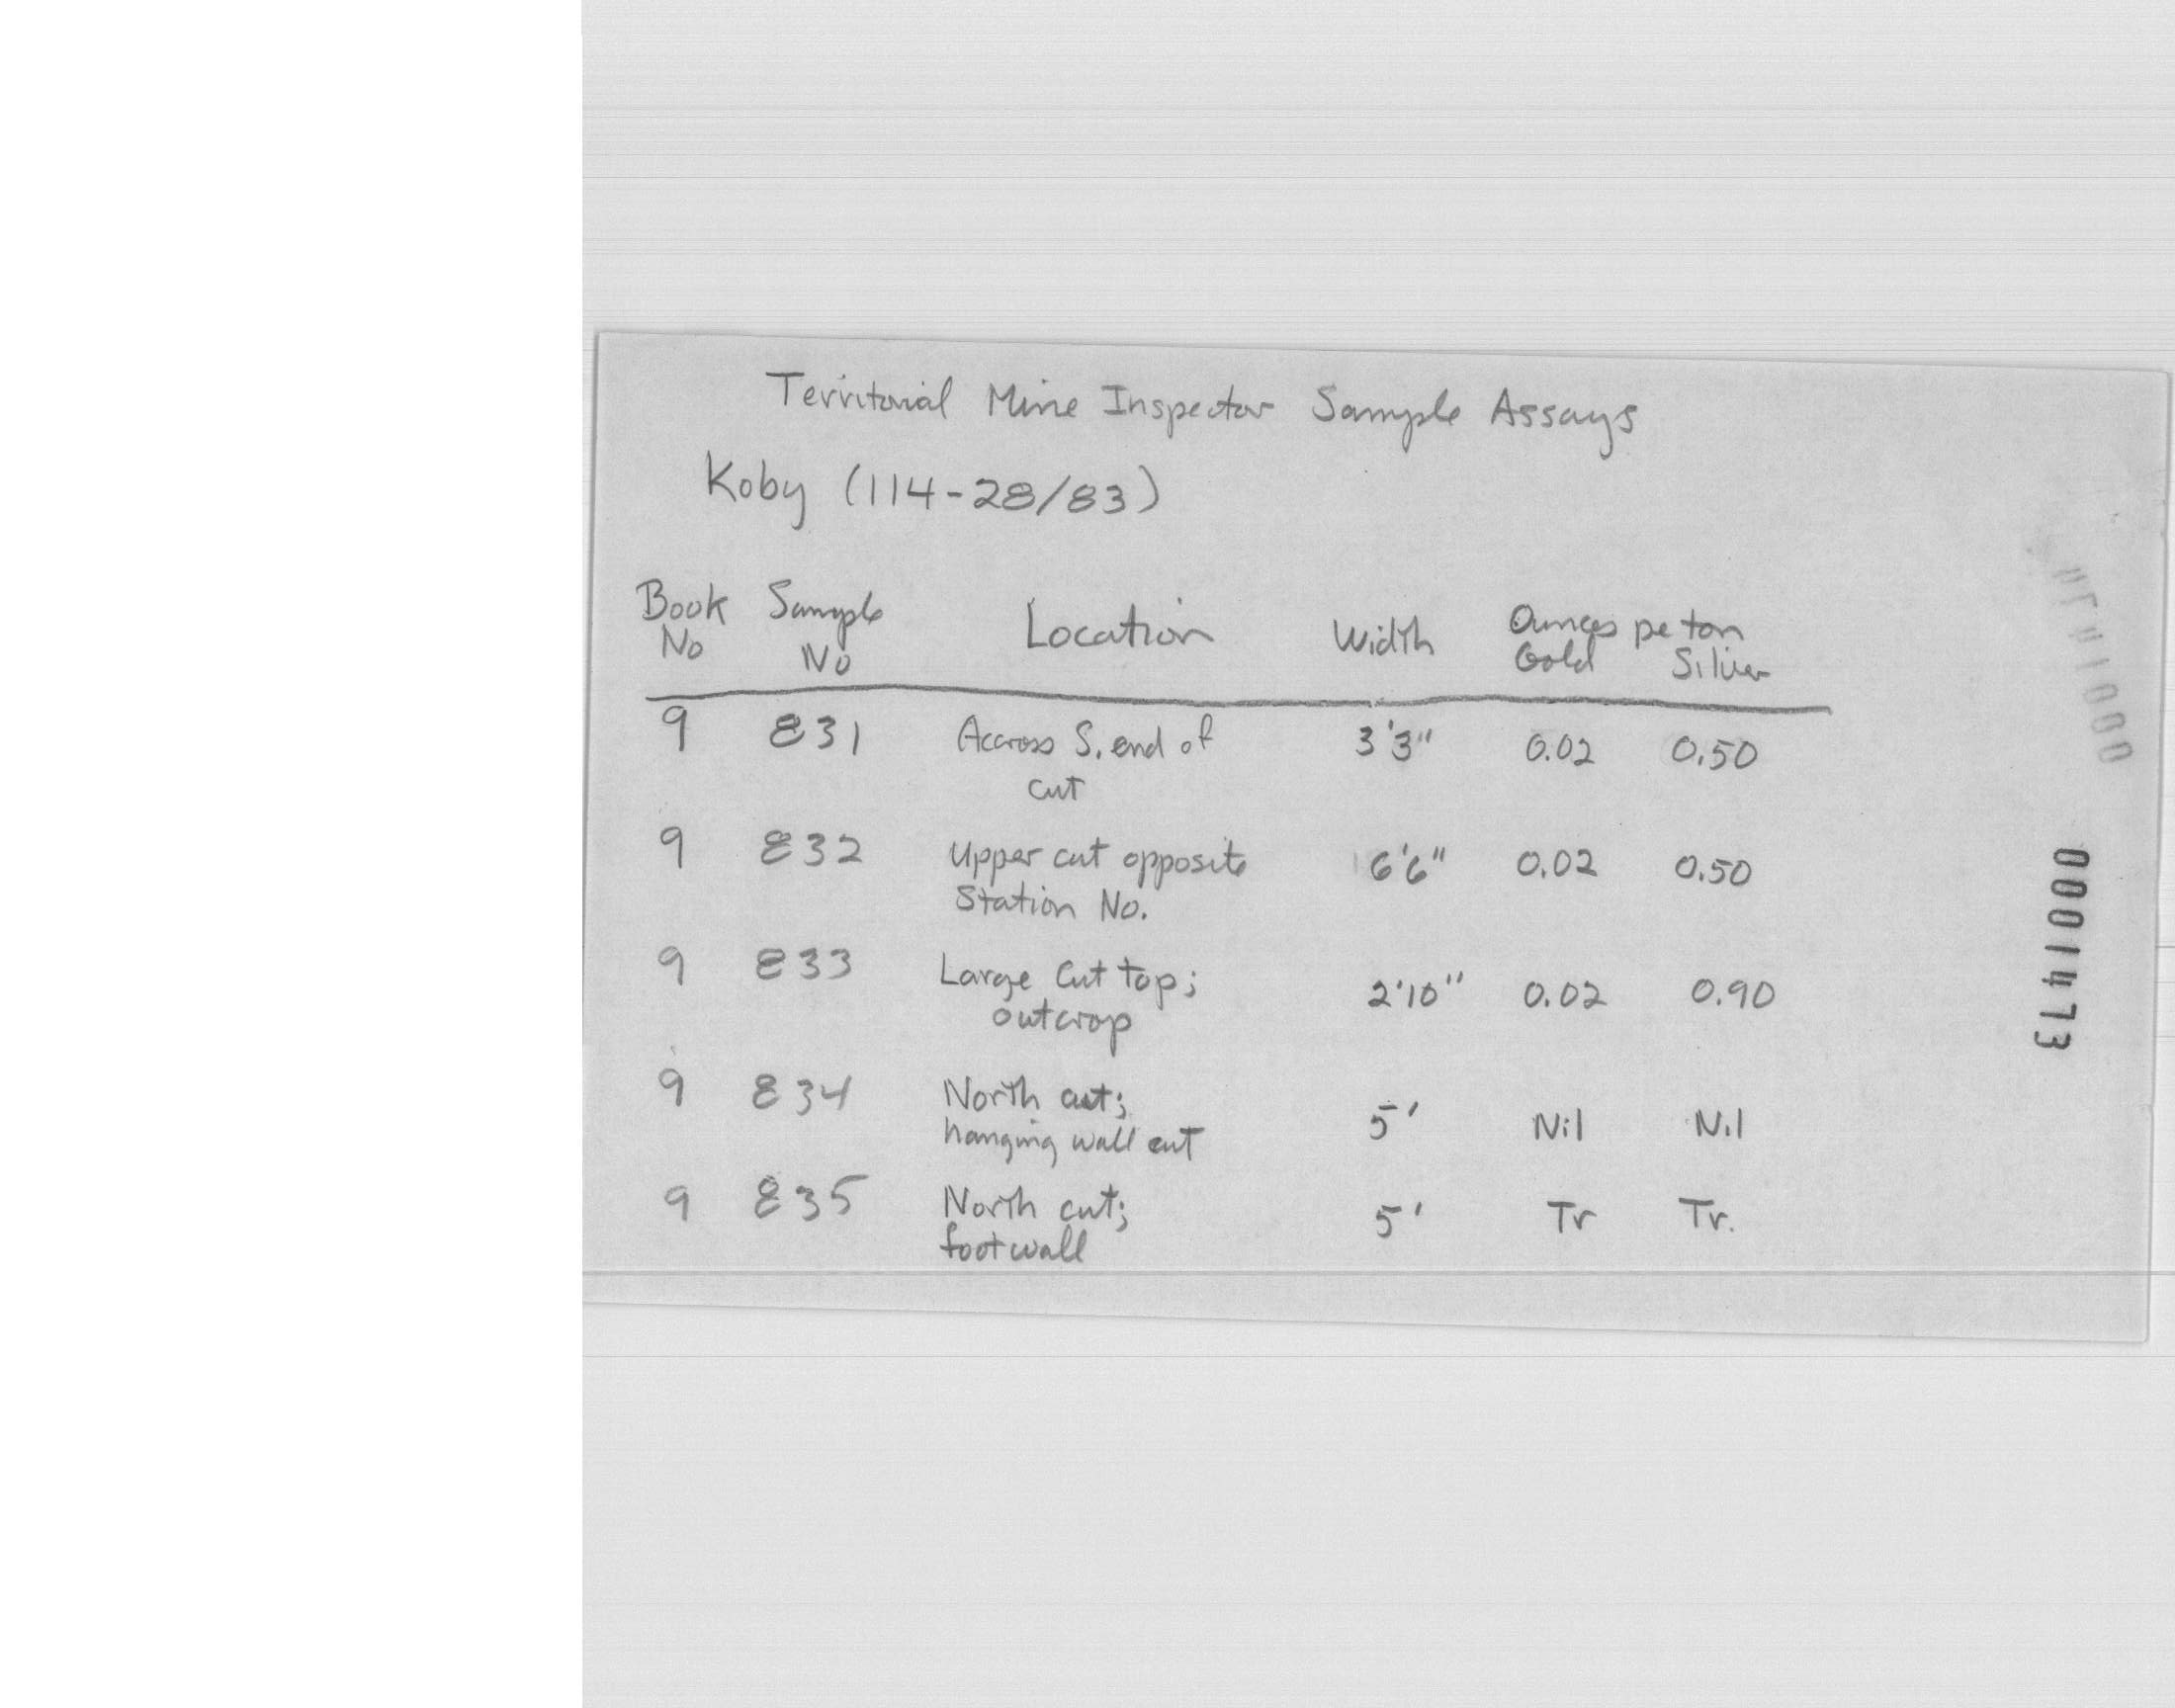 Territorial Mine Inspector Sample Assays
Koby (114-28/83)
Book Sample Location Width Ounces pe ton
No No Gold Siliver
9 831 Accross S. end of 3'3" 0.02 0.50
cut
9 832 Upper cut opposite 6'6" 0.02 0.50
Station No.
9 833 Large Cut top; 2'10" 0.02 0.90
outcrop
9 834 North cut; 5' Nil Nil
hanging wall cut
9 835 North cut; 5' Tr Tr.
footwall
00014173